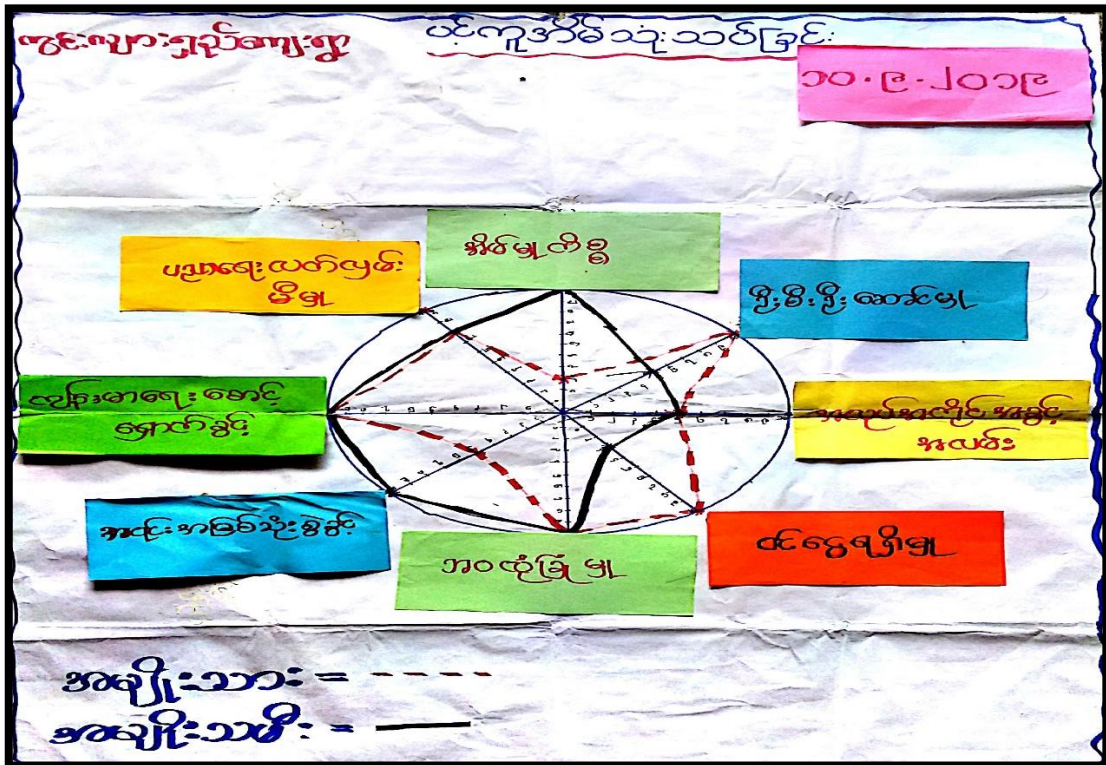 ကွင်းကျားရှည်ကျေးရွာ
ပင့်ကူအိမ်သုံးသပ်ခြင်း
၁၀.၉.၂၀၁၉
အိမ်မှုကိစ္စ
ပညာရေးလက်လှမ်း
မီမှု
ဦးစီးဦးဆောင်မှု
ကျန်းမာရေးစောင့်
ရှောက်ခွင့်
အလုပ်အကိုင်အခွင့်
အလမ်း
အရင်းအမြစ်သုံးစွဲခွင့်
ဘဝလုံခြုံမှု
ဝင်ငွေရရှိမှု
အမျိုးသား =
အမျိုးသမီး =